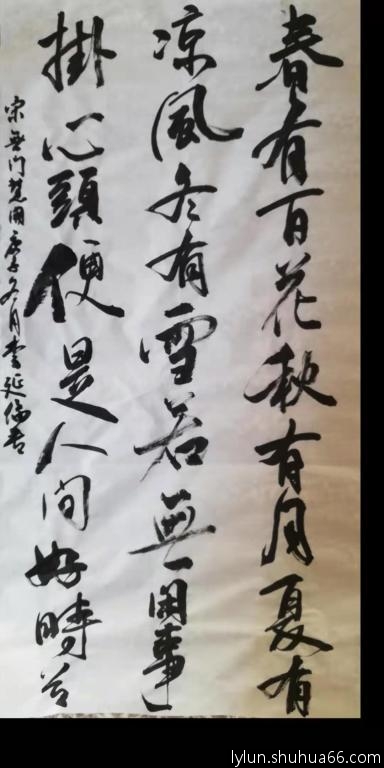 春有百花秋有月夏有
凉風冬有雪若無閑事
掛心頭便是人间好時节
宋無门慧開庚子冬月李延書
lylun.shuhua66.com